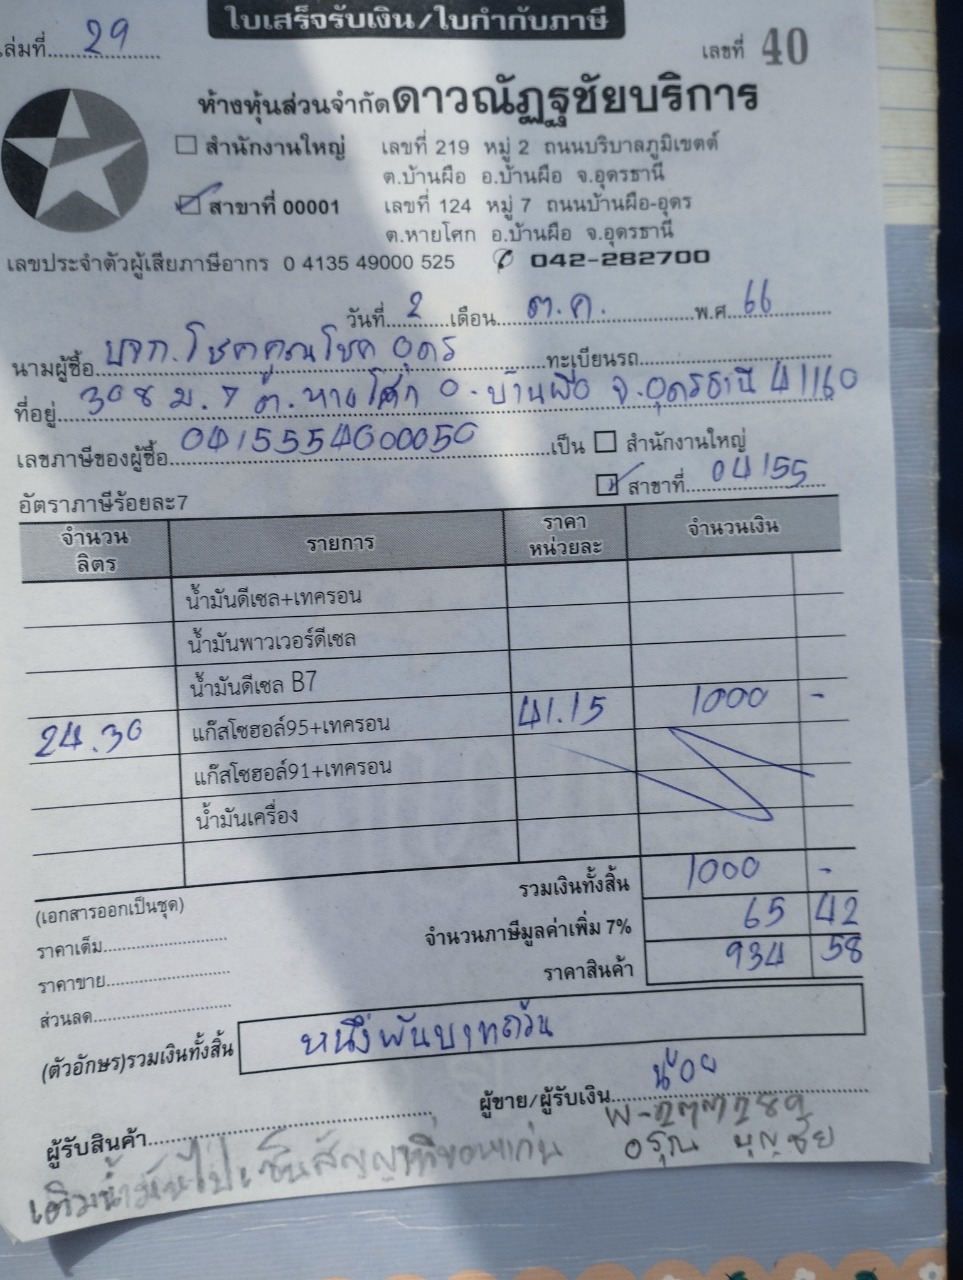 ใบเสร็จรับเงิน/ใบกำกับภาษี
เล่มที่ 29
เลขที่ 40
ห้างหุ้นส่วนจำกัดดาวณัฏฐชัยบริการ
☐ สำนักงานใหญ่ เลขที่ 219 หมู่ 2 ถนนบริบาลภูมิเขตต์
ต.บ้านผือ อ.บ้านผือ จ.อุดรธานี
☑ สาขาที่ 00001 เลขที่ 124 หมู่ 7 ถนนบ้านผือ-อุดร
ต.หายโศก อ.บ้านผือ จ.อุดรธานี
เลขประจำตัวผู้เสียภาษีอากร 0 4135 49000 525 ✆ 042-282700
วันที่ 2 เดือน ต.ค. พ.ศ. 66
นามผู้ซื้อ บจก.โชคคูณโชค อุดร ทะเบียนรถ
ที่อยู่ 308 ม.7 ต.หายโศก อ.บ้านผือ จ.อุดรธานี 41160
เลขภาษีของผู้ซื้อ 0415554000050 เป็น ☐ สำนักงานใหญ่
☑ สาขาที่ 04155
อัตราภาษีร้อยละ7
จำนวนลิตร รายการ ราคาหน่วยละ จำนวนเงิน
น้ำมันดีเซล+เทครอน
น้ำมันพาวเวอร์ดีเซล
น้ำมันดีเซล B7
24.30 แก๊สโซฮอล์95+เทครอน 41.15 1000 -
แก๊สโซฮอล์91+เทครอน
น้ำมันเครื่อง
รวมเงินทั้งสิ้น 1000 -
(เอกสารออกเป็นชุด)
จำนวนภาษีมูลค่าเพิ่ม 7% 65 42
ราคาเต็ม
ราคาสินค้า 934 58
ราคาขาย
ส่วนลด
(ตัวอักษร)รวมเงินทั้งสิ้น หนึ่งพันบาทถ้วน
ผู้ขาย/ผู้รับเงิน น้อย
ผู้รับสินค้า
เติมน้ำมันไปเซ็นสัญญาที่ขอนแก่น อรุณ บุญชัย